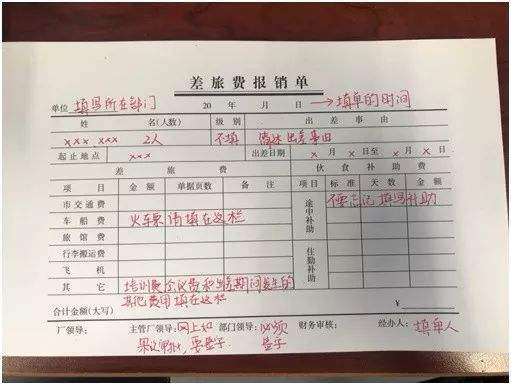 差旅费报销单
单位 填写所在部门 20 年 月 日 →填单的时间
姓 名(人数) 级别 出差事由
xxx xxx 2人 不填 简述出差事由
起止地点 xxx 出差日期 x 月 x 日至 x 月 x 日
差旅费 伙食补助费
项目 金额 单据页数 备注 项目 标准 天数 金额
市交通费 途中补助 不要忘记填写补助
车船费 火车票请填在这栏
旅馆费
行李搬运费 住勤补助
飞机
其它 培训费会议费和出差期间发生的
其他费用填在这栏
合计金额(大写) ¥
厂领导: 主管厂领导: 网上如 部门领导: 必须 财务审核: 经办人: 填单人
要签字 签字